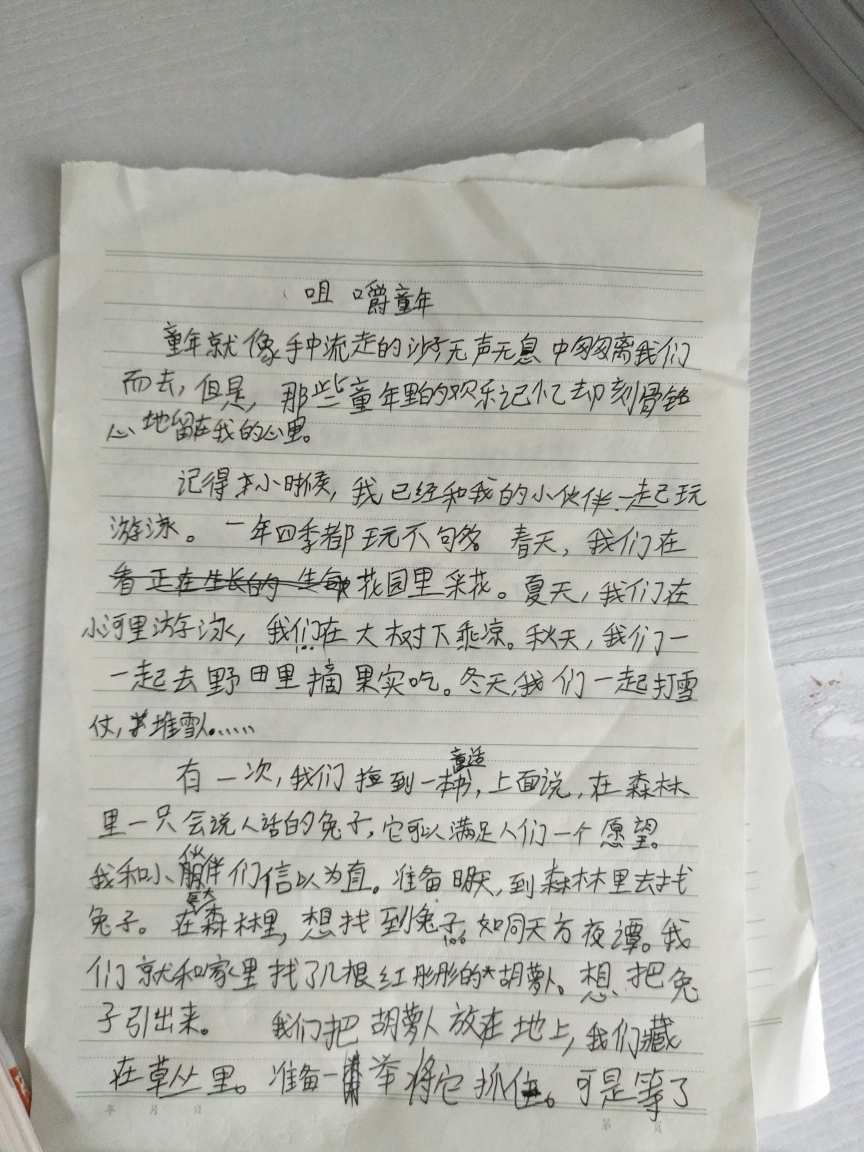 咀嚼童年
童年就像手中流走的沙子无声无息中匆匆离我们
而去，但是，那些童年里的欢乐记忆却刻骨铭
心地留在我的心里。
记得小时候，我已经和我的小伙伴一起玩
游泳。一年四季都玩不够 春天，我们在
看正在生长的 花园里采花。夏天，我们在
小河里游泳，我们在大树下乘凉。秋天，我们一
一起去野田里摘果实吃。冬天，我们一起打雪
仗，堆雪人。……
童话
有一次，我们捡到一本书，上面说，在森林
里一只会说人话的兔子，它可以满足人们一个愿望。
我和小伙伴们信以为直。准备明天，到森林里去找
兔子。在森林里，想找到兔子，如同天方夜谭。我
们就和家里找了几根红彤彤的大胡萝卜。想把兔
子引出来。 我们把胡萝卜放在地上，我们藏
在草丛里。准备一举将它抓住。可是等了
年 月 日 第 页